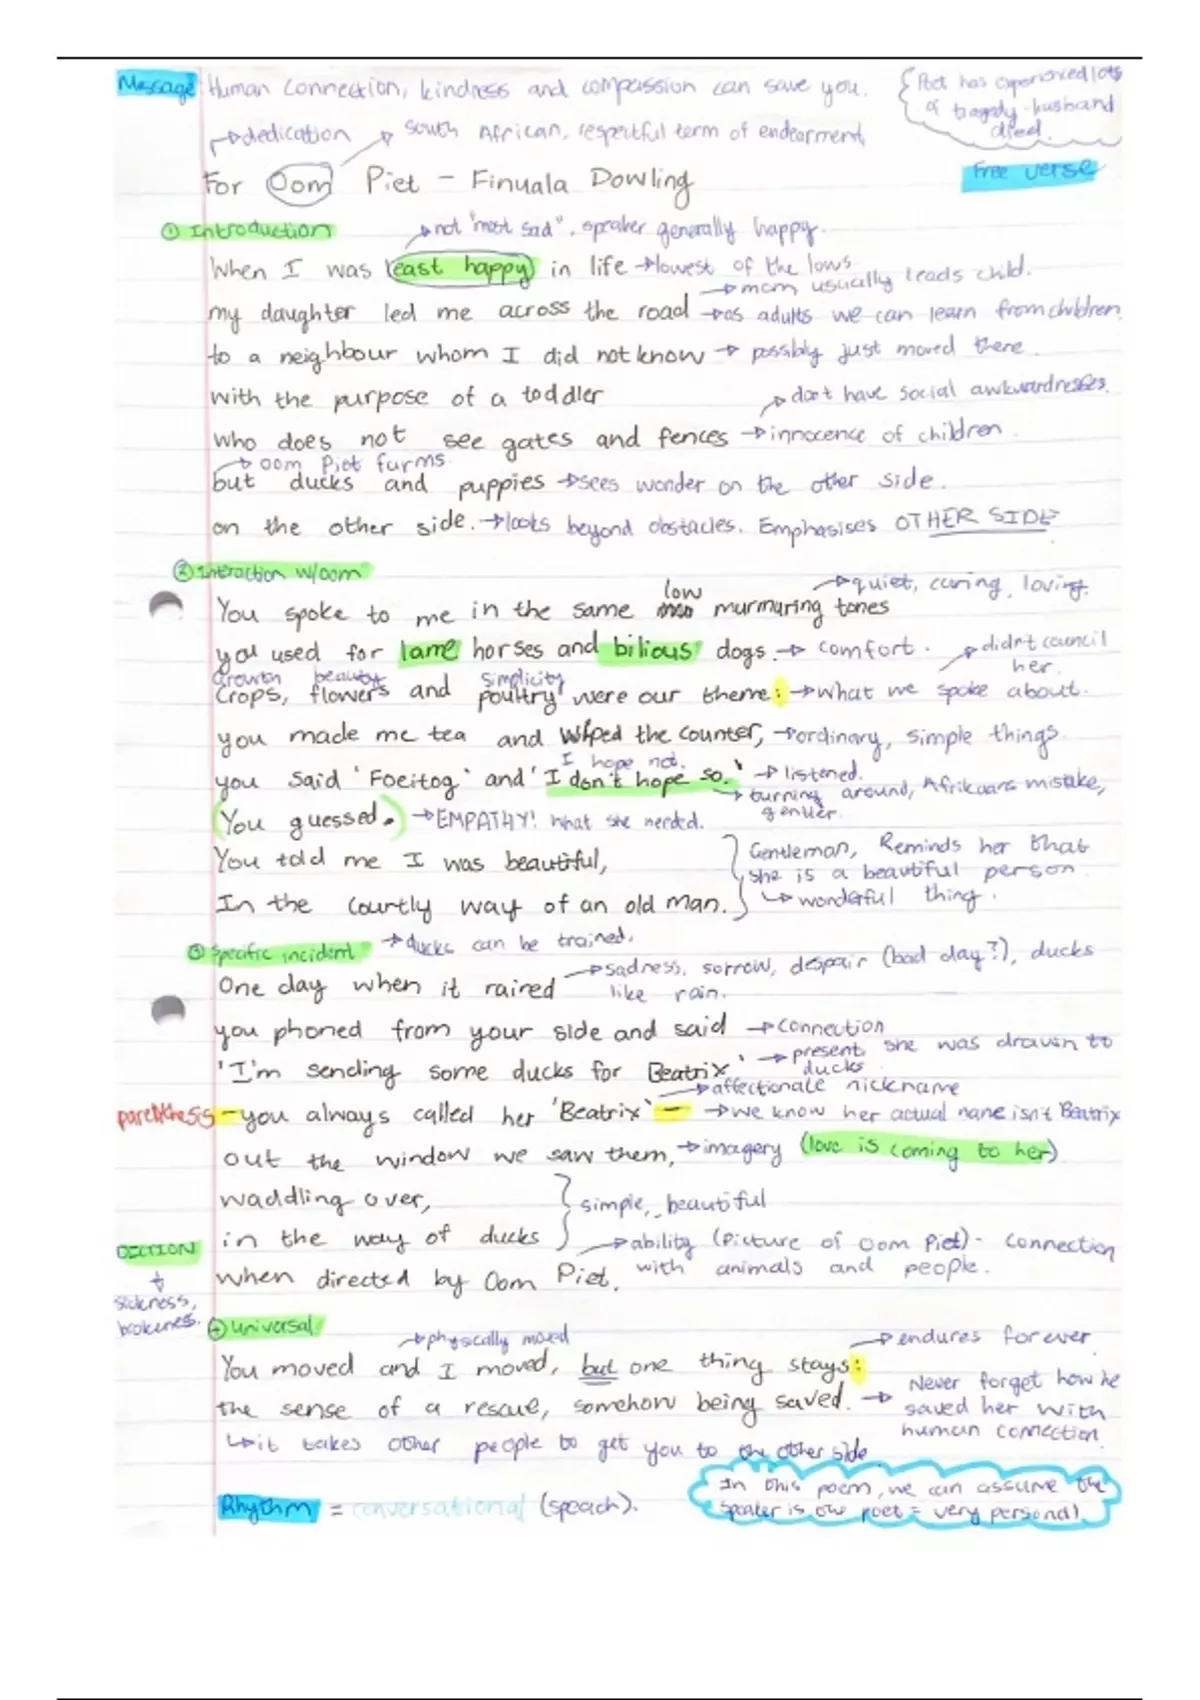 Message: Human connection, kindness and compassion can save you.
Poet has experienced lots
of tragedy - husband
died.
→dedication → South African, respectful term of endearment,
For Oom Piet - Finuala Dowling
Free verse
① Introduction
→not "most sad", speaker generally happy.
When I was least happy in life →lowest of the lows
→mom usually leads child.
my daughter led me across the road →as adults we can learn from children.
to a neighbour whom I did not know → possibly just moved there.
with the purpose of a toddler
→don't have social awkwardnesses.
who does not see gates and fences →innocence of children.
→ Oom Piet farms.
but ducks and puppies →sees wonder on the other side.
on the other side. →looks beyond obstacles. Emphasises OTHER SIDE
② Interaction w/oom
→quiet, caring, loving.
low
You spoke to me in the same murmuring tones
you used for lame horses and bilious dogs. → comfort.
→didn't council
her.
Growth beauty simplicity
Crops, flowers and poultry were our theme: →what we spoke about.
you made me tea and wiped the counter, →ordinary, simple things.
I hope not.
you said 'Foeitog' and 'I don't hope so.' →listened.
→turning around, Afrikaans mistake,
gentler.
(You guessed.) →EMPATHY! What she needed.
You told me I was beautiful,
In the courtly way of an old man.
Gentleman, Reminds her that
she is a beautiful person.
↳wonderful thing.
③ Specific incident →ducks can be trained.
One day when it rained →sadness, sorrow, despair (bad day?), ducks
like rain.
you phoned from your side and said →connection
'I'm sending some ducks for Beatrix' →present, she was drawn to
ducks
→affectionate nickname
parenthesis -you always called her 'Beatrix'- →we know her actual name isn't Beatrix
out the window we saw them, →imagery (love is coming to her)
waddling over,
in the way of ducks
simple, beautiful
when directed by Oom Piet.
→ability (Picture of Oom Piet) - connection
with animals and people.
DICTION
↓
sickness,
brokeness.
④ Universal
→physically moved
You moved and I moved, but one thing stays:
→endures forever
the sense of a rescue, somehow being saved. →
Never forget how he
saved her with
human connection.
↳it takes other people to get you to the other side
Rhythm = conversational (speach).
In this poem, we can assume the
speaker is the poet = very personal